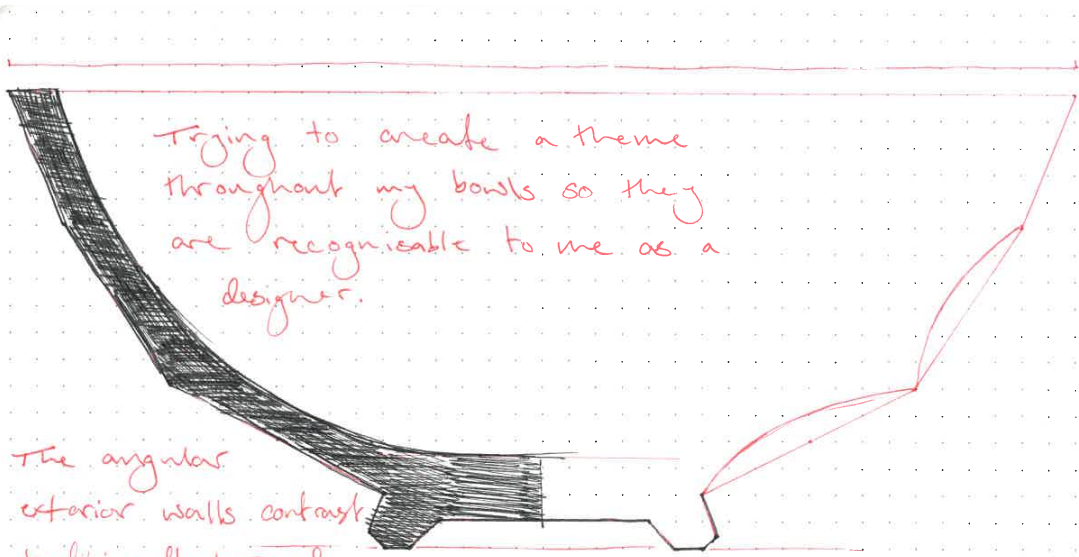 Trying to create a theme
throughout my bowls so they
are recognisable to me as a
designer.
The angular
exterior walls contrast